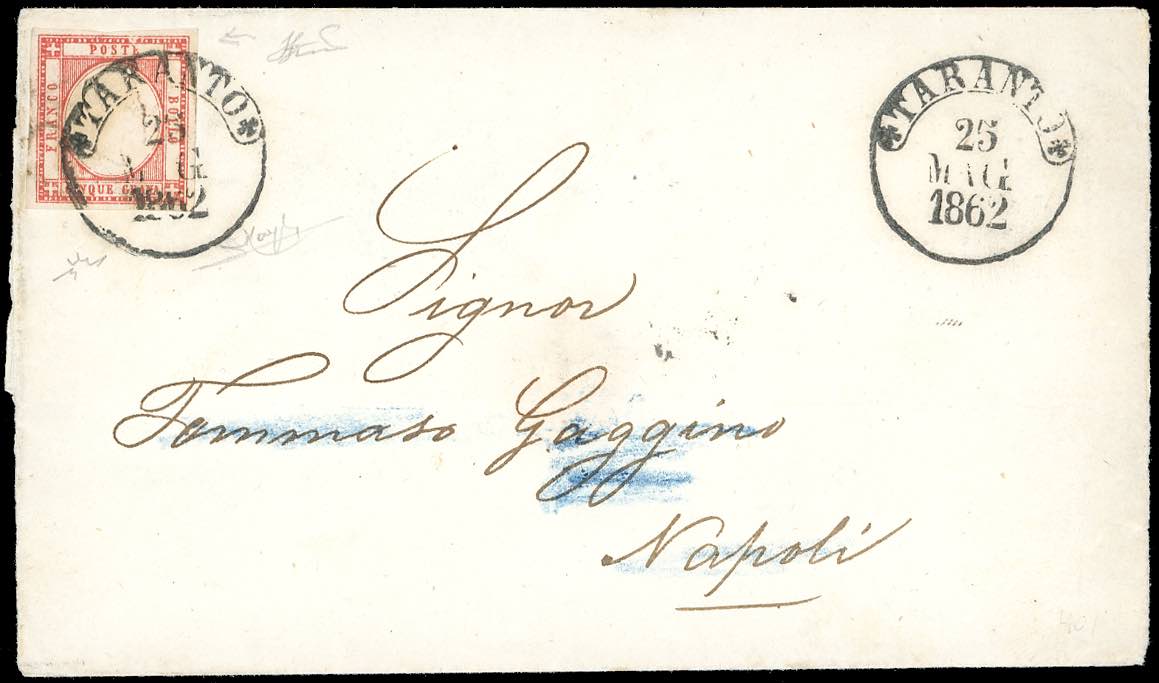 POSTE
FRANCO
BOLLO
CINQUE GRANA
TARANTO
25
MAG
1862
TARANTO
25
MAG
1862
Signor
Tommaso Gaggino
Napoli